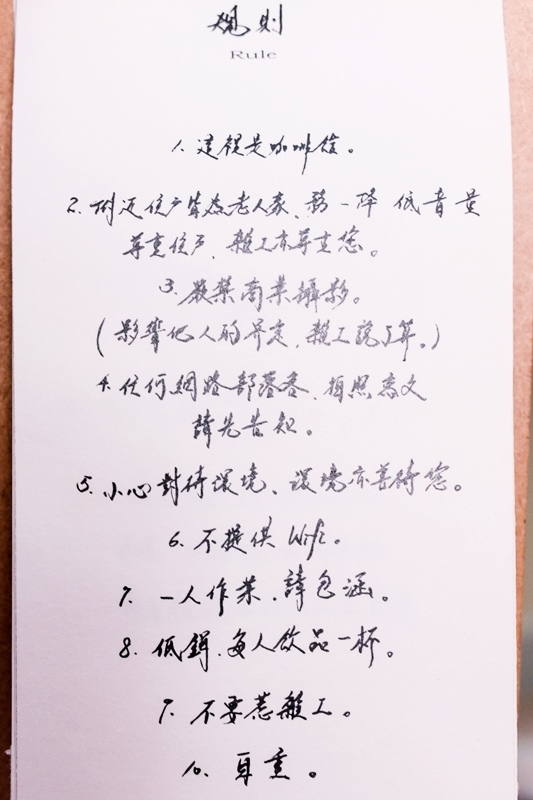 規則
Rule
1. 這裡是咖啡館。
2. 附近住戶皆為老人家、務一降低音量
尊重住戶、雜工亦尊重您。
3. 嚴禁商業攝影。
(影響他人的界定、雜工說了算。)
4. 任何網路部落客、拍照
請先告知。
5. 小心對待環境、環境亦善待您。
6. 不提供 Wifi。
7. 一人作業、請包涵。
8. 低銷、每人飲品一杯。
9. 不要惹雜工。
10. 自重。